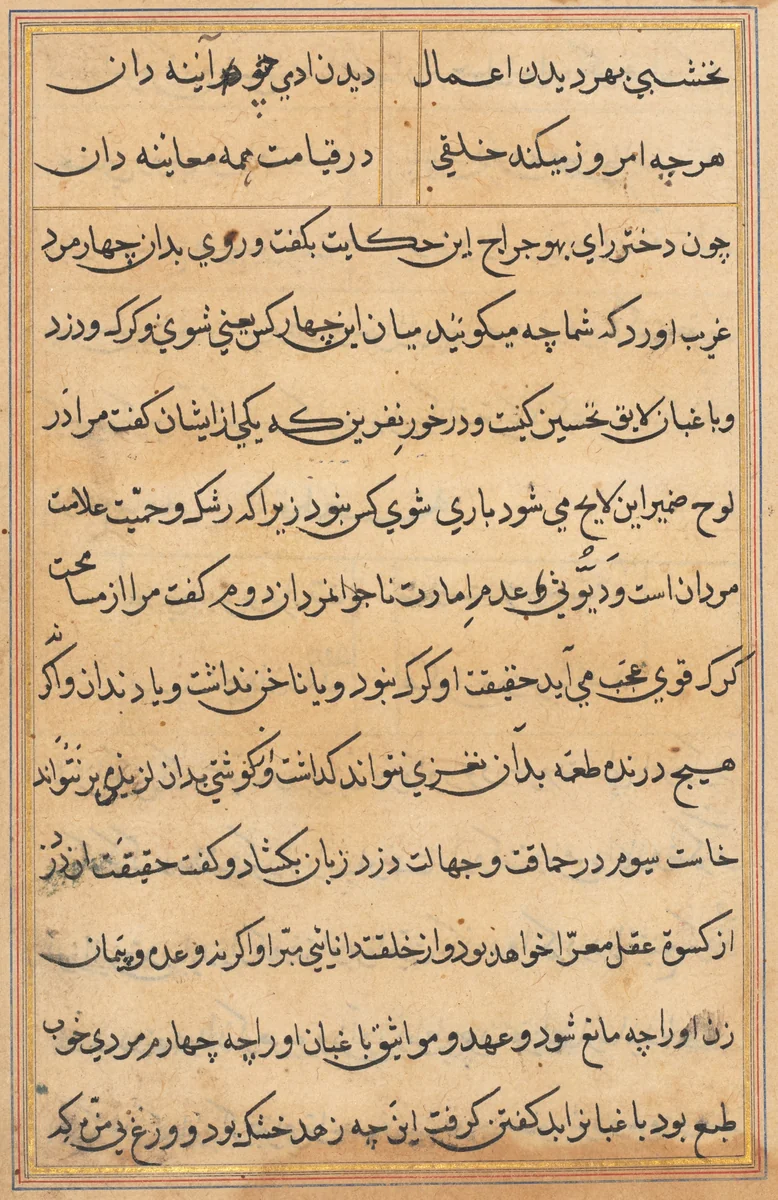 نخشبي بهر ديدن اعمال ديدن ادي خود آينه دان
هرچه امروز ميكند خلقي در قيامت همه معاينه دان
چون دختر راي بهوجراج اين حكايت بكفت و روي بدان چهار مرد
غريب اورد كه شما چه ميكوئيد ميان اين چهار كس يعني شوي و كرك و دزد
و باغبان لايق تحسين كيست و در خور نفرين كه يكي از ايشان كفت مرا در
لوح ضمير اين لايح مي شود باري شوي كس نبود زيرا كه رشك و حميّت علامت
مردان است و ديّوثي عدم امارت ناجوانمردان دوم كفت مرا از مسامحت
كرك قوي عجب مي آيد حقيقت او كرك نبود و يا ناخن نداشت و يا دندان و اكرنه
هيچ درنده طعمه بدان نغزي نتواند كذاشت و از كوشتي بدان لزيذي بر نتواند
خاست سيوم در حماقت و جهالت دزد زبان بكشاد و كفت حقيقت ان دزد
از كسوة عقل معرّا خواهد بود و از خلقت دانائي مبرّا و اكرنه وعده و پيمان
زن او را چه مانع شود و عهد و مواثيق باغبان او را چه چهارم مردي خوب
طبع بود باغبانرا بد كفتن كرفت اين چه زهد خشك بود و ورع بي مزه كه